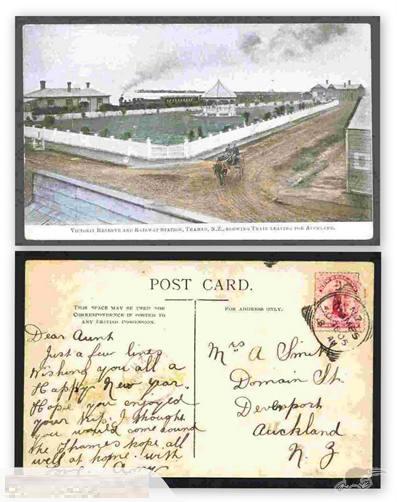 VICTORIA RESERVE AND RAILWAY STATION, THAMES, N.Z., SHOWING TRAIN LEAVING FOR AUCKLAND.
POST CARD.
THIS SPACE MAY BE USED FOR
CORRESPONDENCE IF POSTED TO
ANY BRITISH POSSESSION.
FOR ADDRESS ONLY.
Dear Aunt
Just a few lines
Wishing you all a
Happy New Year.
Hope you enjoyed
your trip. I thought
you would come round
the Thames hope all
well at home. with
love
Mrs A Smith
Domain St.
Devonport
Auckland
N. Z